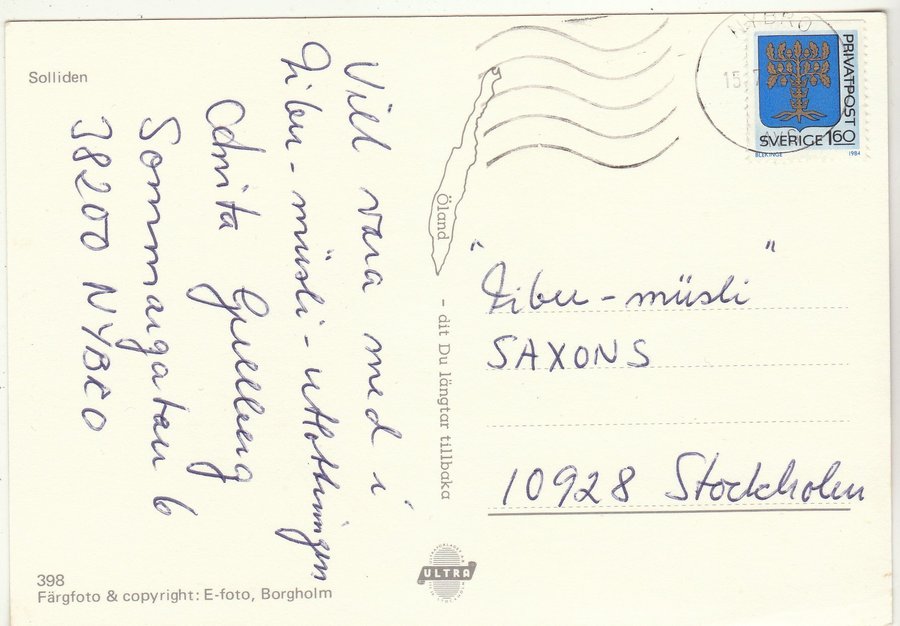 Solliden
Vill vara med i
Fiber-müsli-utlottningen
Anita Gullberg
Sommargatan 6
38200 NYBRO
398
Färgfoto & copyright: E-foto, Borgholm
Öland
- dit Du längtar tillbaka
ULTRA
NYBRO
15
PRIVATPOST
SVERIGE 160
BLEKINGE 1984
"Fiber-müsli"
SAXONS
10928 Stockholm